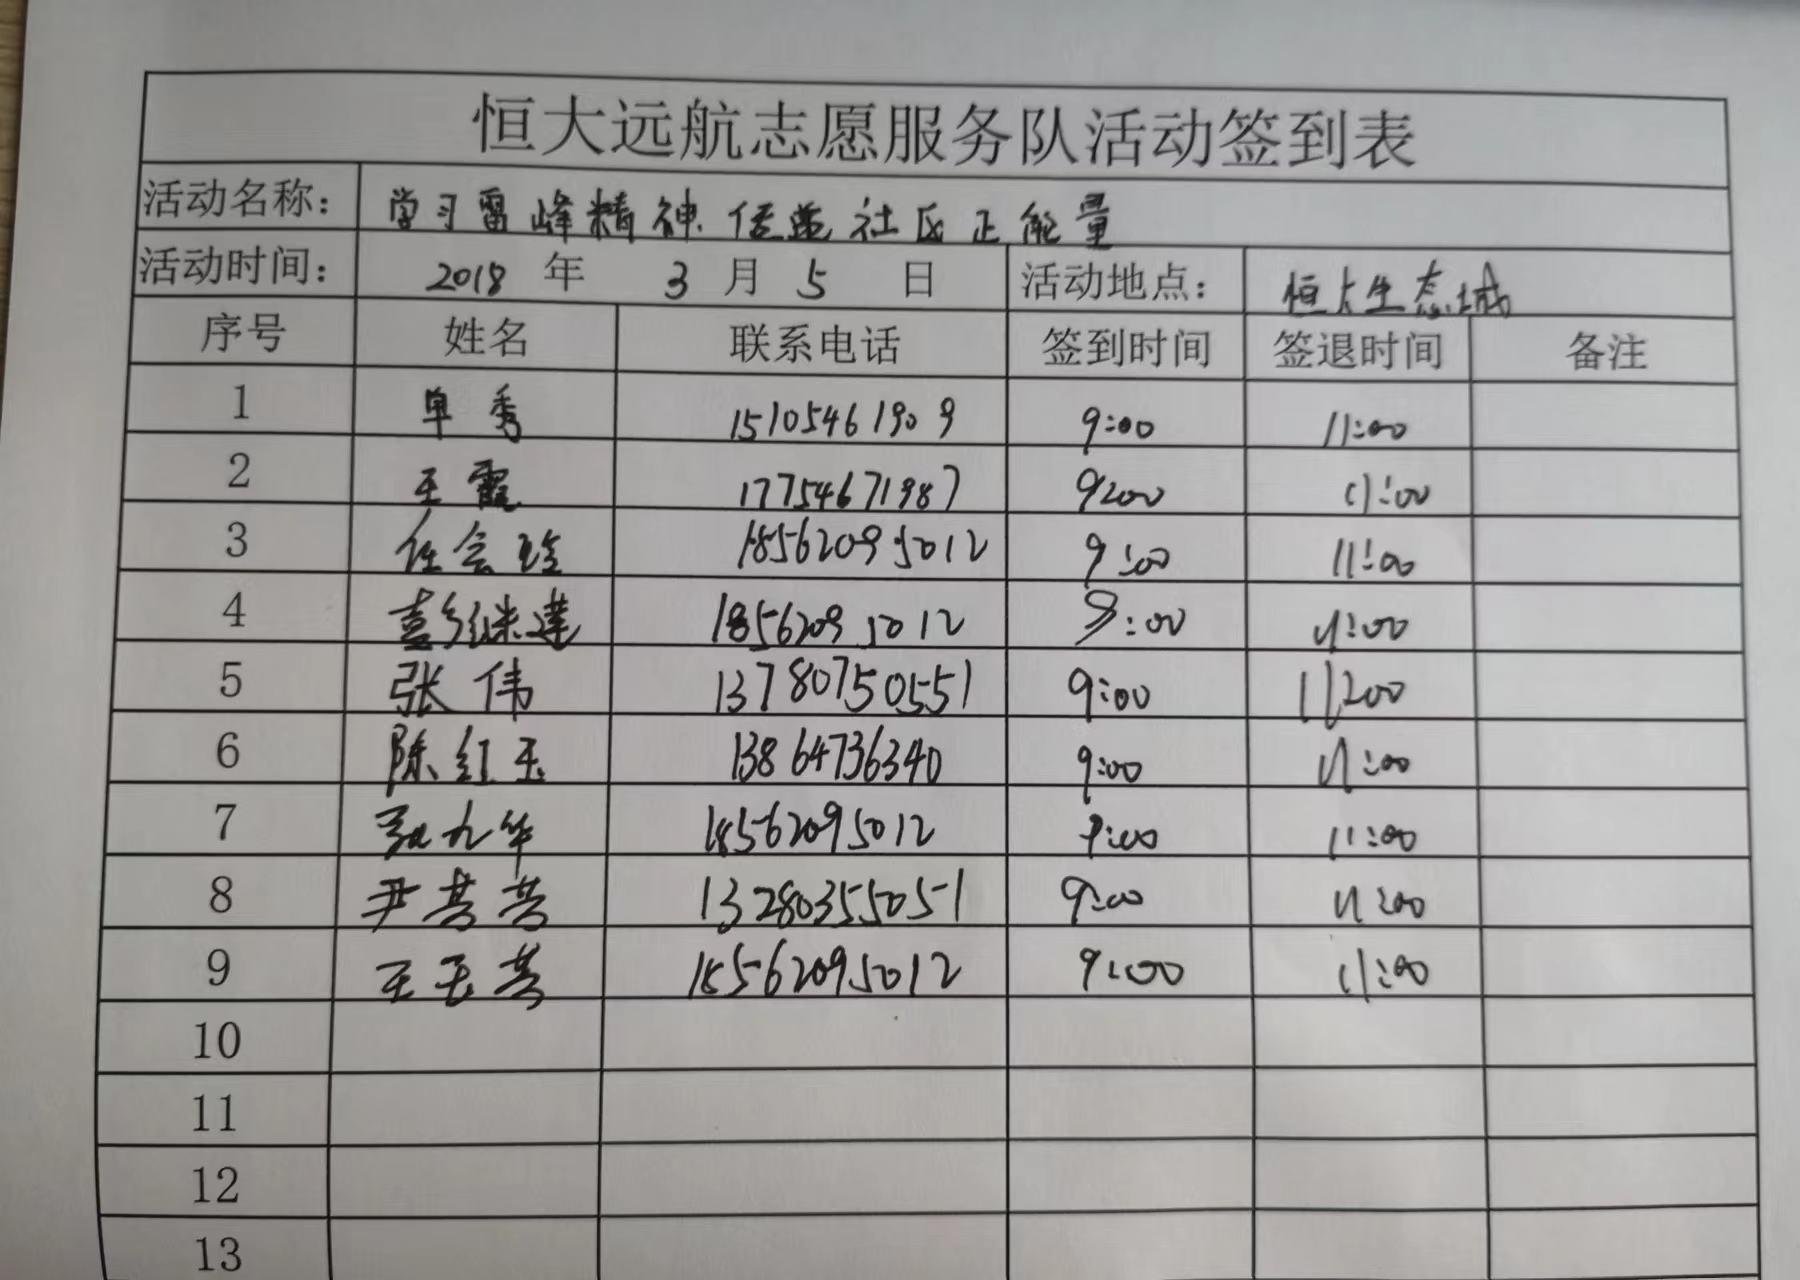 恒大远航志愿服务队活动签到表
活动名称： 学习雷锋精神 传递社区正能量
活动时间： 2018 年 3 月 5 日 活动地点： 恒大生态城
序号 姓名 联系电话 签到时间 签退时间 备注
1 单秀 15105461909 9:00 11:00
2 王霞 17754671987 9:00 11:00
3 任会玲 18562095012 9:00 11:00
4 18562095012 9:00 11:00
5 张伟 13780750551 9:00 11:00
6 陈红玉 13864736340 9:00 11:00
7 九华 18562095012 9:00 11:00
8 尹芸芸 13280355051 9:00 11:00
9 王玉芸 18562095012 9:00 11:00
10
11
12
13